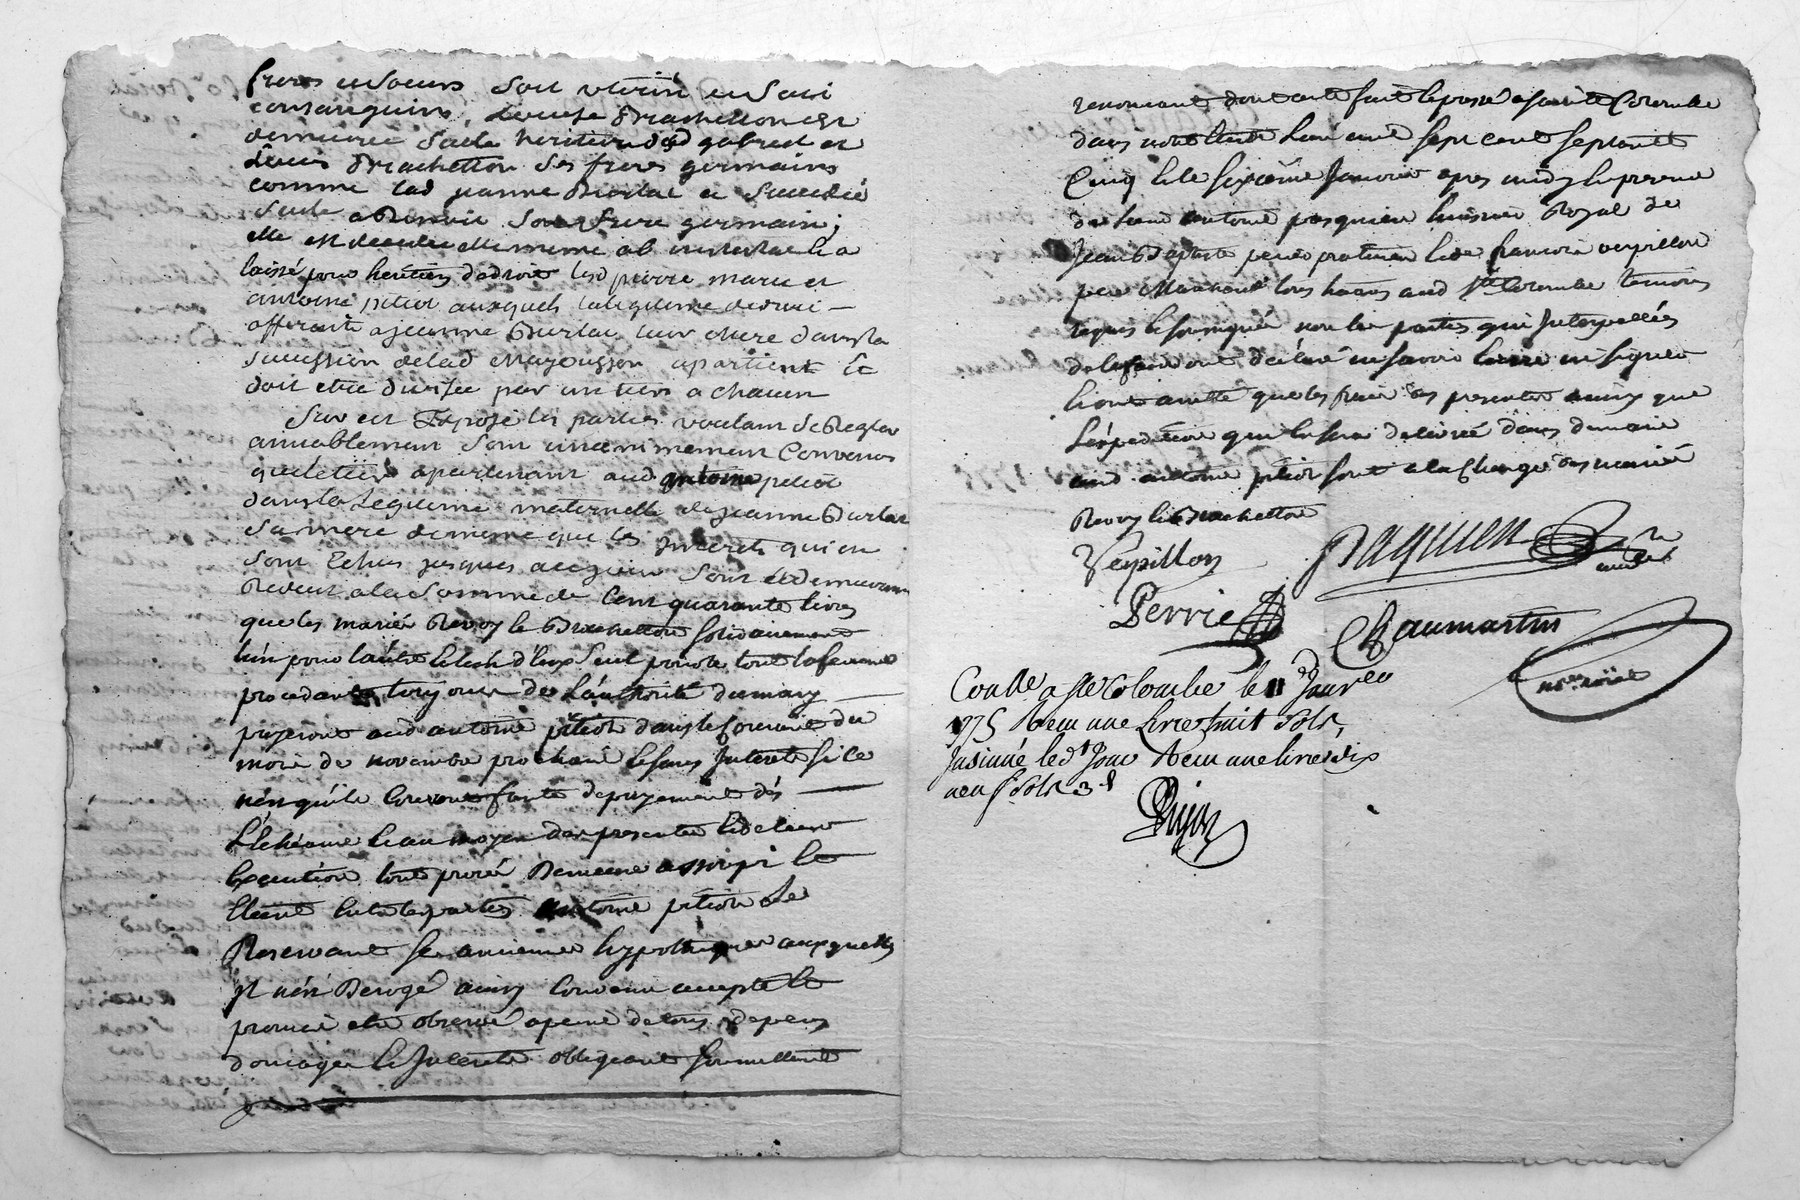 freres et soeurs soit uterin ou soit
consanguins, Louise Brachetton est
demeurée seule heritiere gabriel et
Louis Brachetton ses freres germains
comme lad jeanne Burlat a succedé
seule a Benoit son frere germain;
elle est decedée elle meme ab intestat et a
laissé pour heritiers de droit lesd pierre marie et
antoine pitiot auxquels la legitime
afferante a jeanne Burlat leur mere dans la
succession de lad apartient et
doit etre divisée par un tiers a chacun
Sur cet Exposé les parties voulant se Regler
amiablement sont unanimement Convenus
que le tiers apartenant aud antoine pitiot
dans la Legitime maternelle de jeanne Burlat
sa mere de meme que les Interets qui en
sont Echus jusques a ce jour sont et demeurent
a la somme de Cent quarante livres
que les mariés Revoy et Brachetton solidairement
l'un pour l'autre d'eux seul pour le tout la femme
procedante toujours de L'authorité du mary
payeront aud antoine pitiot dans le courant du
mois de novembre prochain sans Interets si ce
n'en qu'à faute de payement dès
L'échéance et au moyen des presentes et de leur
Execution tout procés Demeure assoupi et
Eteint entre les parties antoine pitiot se
Reservant ses anciennes hypotheques auxquelles
Il n'en Deroge ainsy Convenu accepté et
promis etre observé a peine de tous depens
domages et Interets obligeant soumettant
renonceant dont acte fait et passé a sainte Colombe
dans notre Etude L'an mil sept cent septante
Cinq et le sixieme Janvier apres midy En presence
de sieur antoine pasquien huissier Royal de
Jean Baptiste perrié praticien et de françois verpillon
pere Marchand tous trois aud Ste Colombe temoins
requis et soussignés non les parties qui Interpellées
de le faire ont déclaré ne savoir Ecrire ni signer
que les frais des presentes ainsy que
L'expédition qui en sera delivrée dans demain
aud antoine pitiot sont a la Charge des mariés
Revoy et Brachetton
Verpillon
Paquien
Perrié
Chaumartin
nore roial
Conllé a Ste Colombe le 11 Janver
1775 Recu une livre huit sols,
Insinué led Jour Recu une livre dix
neuf sols 3 d